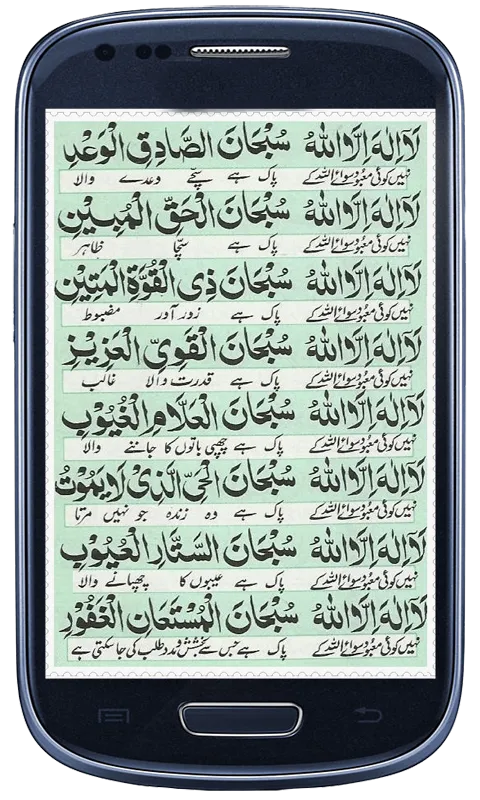 لَآ اِلٰهَ اِلَّا اللّٰهُ سُبْحَانَ الصَّادِقِ الْوَعْدِ
نہیں کوئی معبود سوائے اللہ کے پاک ہے سچے وعدے والا
لَآ اِلٰهَ اِلَّا اللّٰهُ سُبْحَانَ الْحَقِّ الْمُبِيْنِ
نہیں کوئی معبود سوائے اللہ کے پاک ہے سچا ظاہر
لَآ اِلٰهَ اِلَّا اللّٰهُ سُبْحَانَ ذِي الْقُوَّةِ الْمَتِيْنِ
نہیں کوئی معبود سوائے اللہ کے پاک ہے زور آور مضبوط
لَآ اِلٰهَ اِلَّا اللّٰهُ سُبْحَانَ الْقَوِيِّ الْعَزِيْزِ
نہیں کوئی معبود سوائے اللہ کے پاک ہے قدرت والا غالب
لَآ اِلٰهَ اِلَّا اللّٰهُ سُبْحَانَ الْعَلَّامِ الْغُيُوْبِ
نہیں کوئی معبود سوائے اللہ کے پاک ہے چھپی باتوں کا جاننے والا
لَآ اِلٰهَ اِلَّا اللّٰهُ سُبْحَانَ الْحَيِّ الَّذِيْ لَا يَمُوْتُ
نہیں کوئی معبود سوائے اللہ کے پاک ہے وہ زندہ جو نہیں مرتا
لَآ اِلٰهَ اِلَّا اللّٰهُ سُبْحَانَ السَّتَّارِ الْعُيُوْبِ
نہیں کوئی معبود سوائے اللہ کے پاک ہے عیبوں کا چھپانے والا
لَآ اِلٰهَ اِلَّا اللّٰهُ سُبْحَانَ الْمُسْتَعَانِ الْغَفُوْرِ
نہیں کوئی معبود سوائے اللہ کے پاک ہے جس سے بخشش و مدد طلب کی جا سکتی ہے